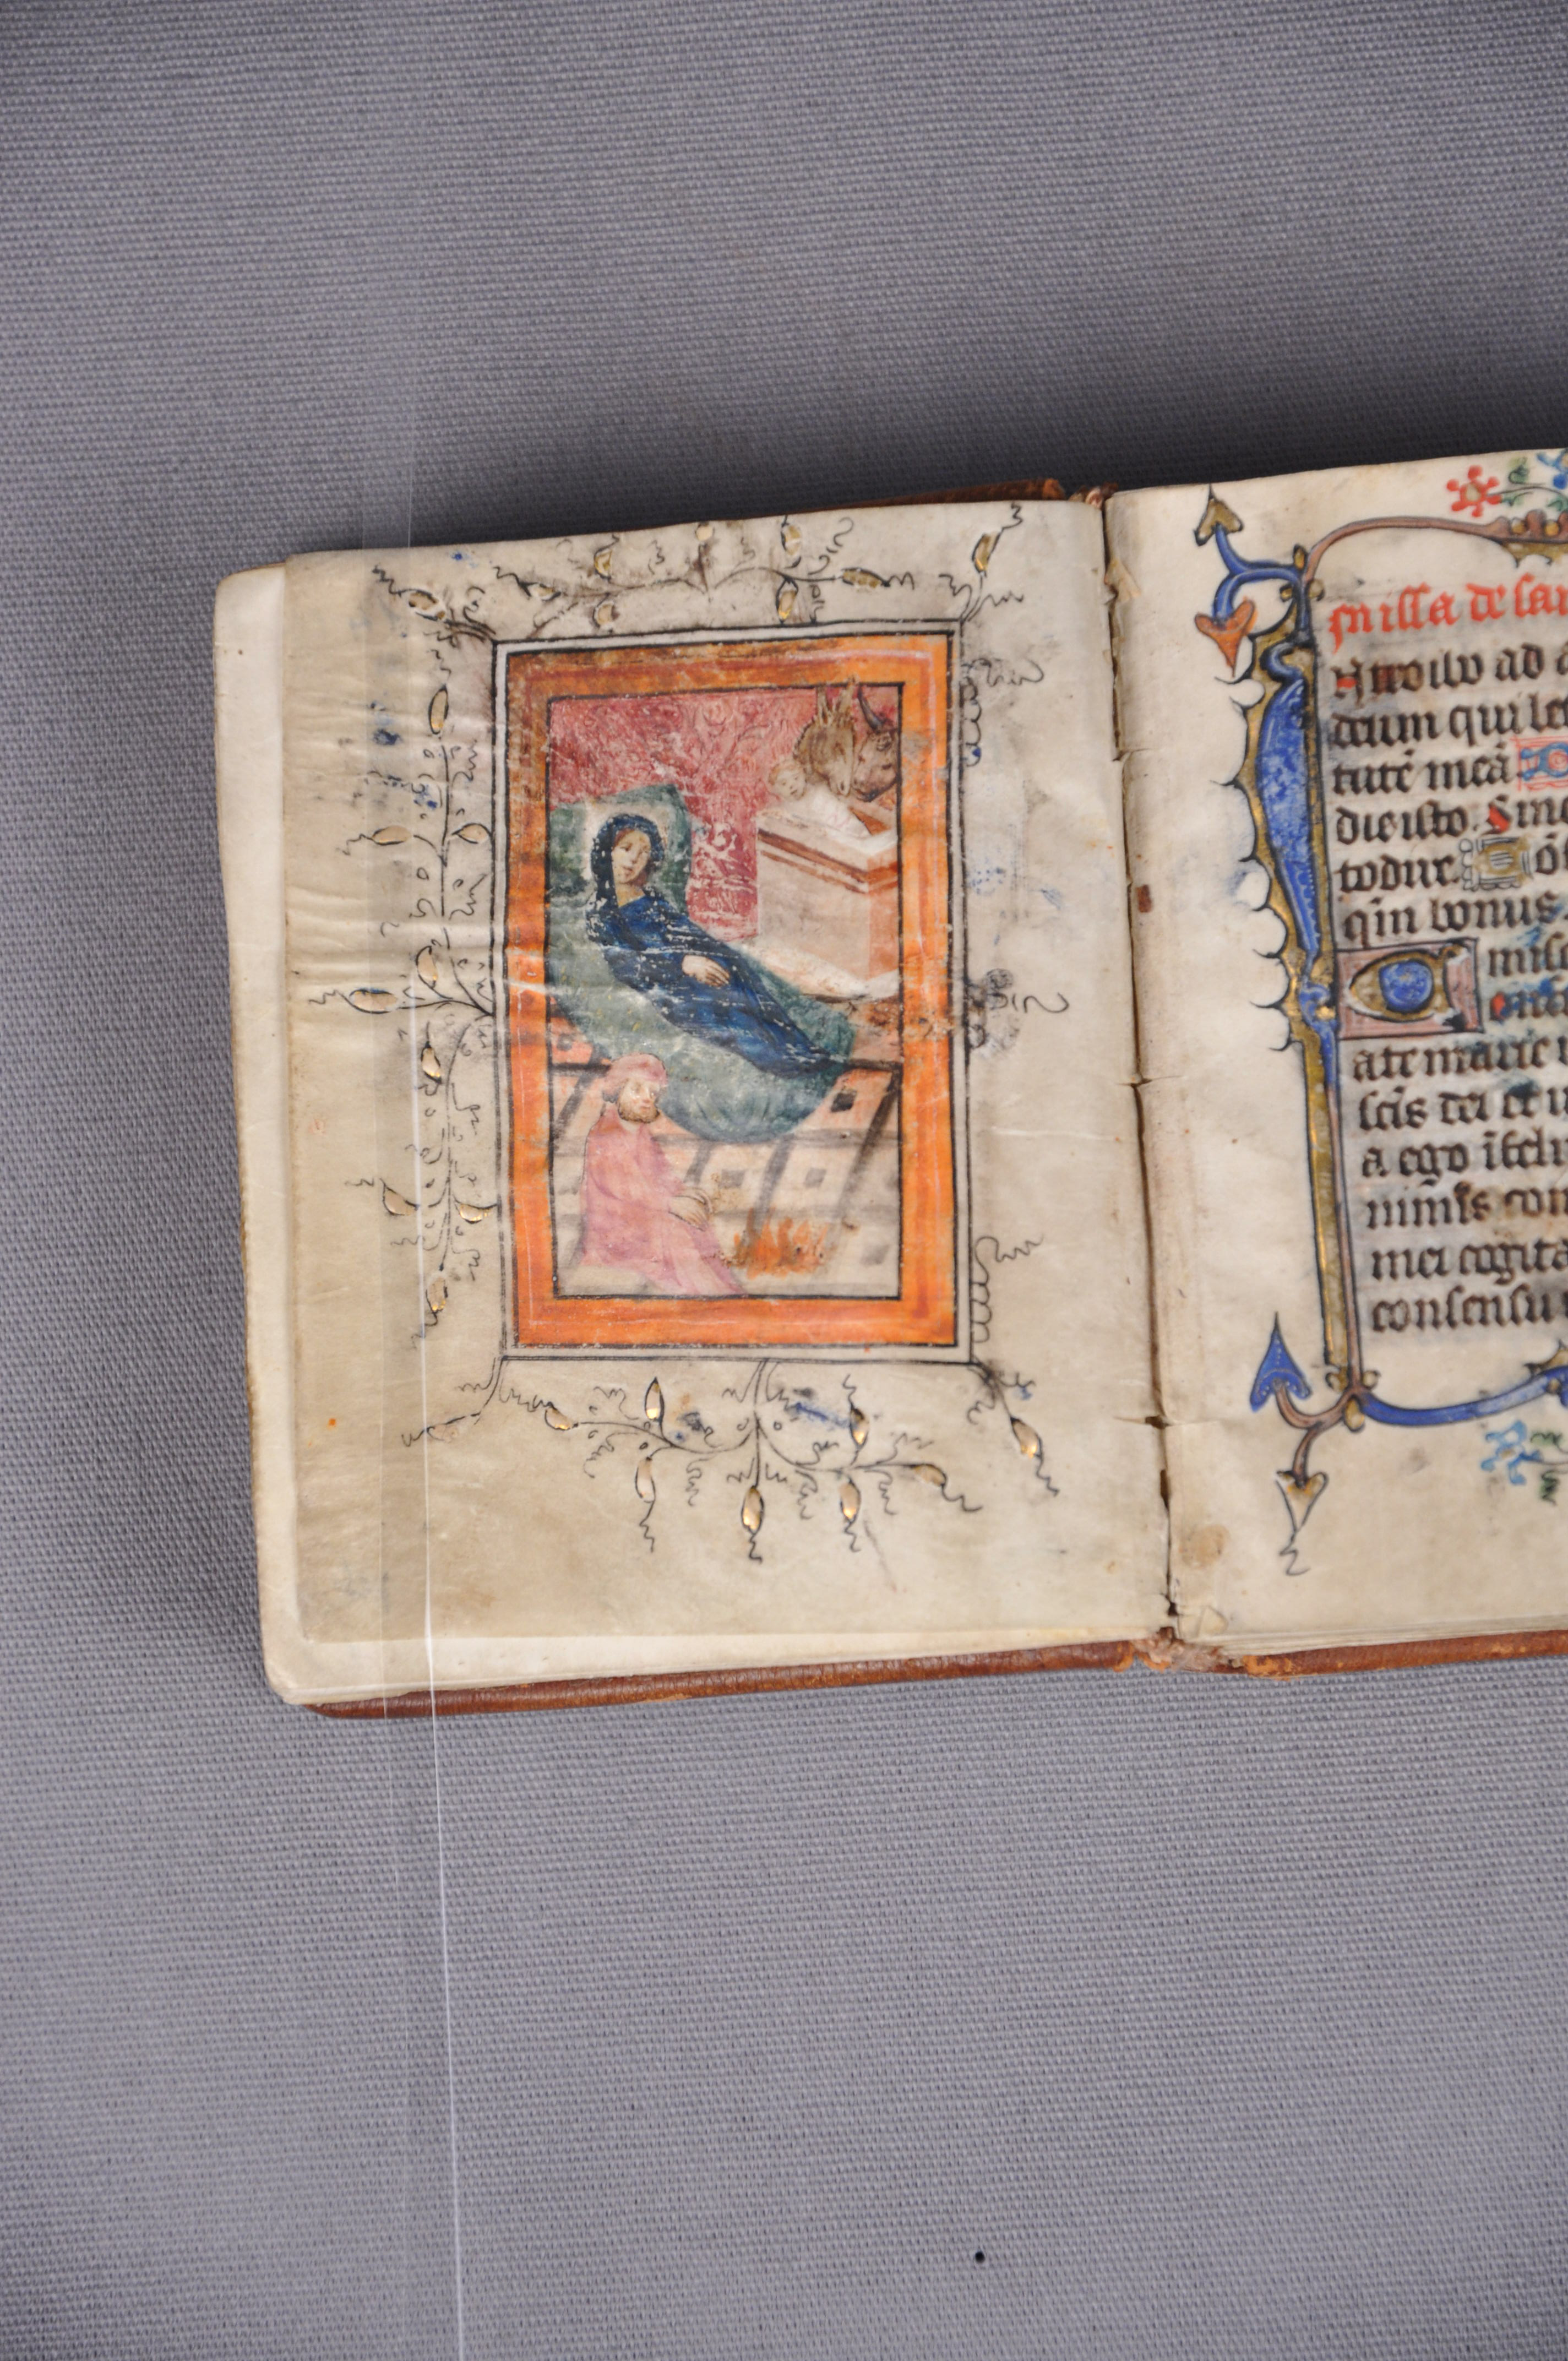 missa de sa
Introibo ad a
deum qui le
tutē meā
die isto. Sina
todire. Oſ
qm̄ bonus
miſ
ate marie v
ſcīs dei et v
a ego īfeli
nimīs con
mei cogita
conſenſu